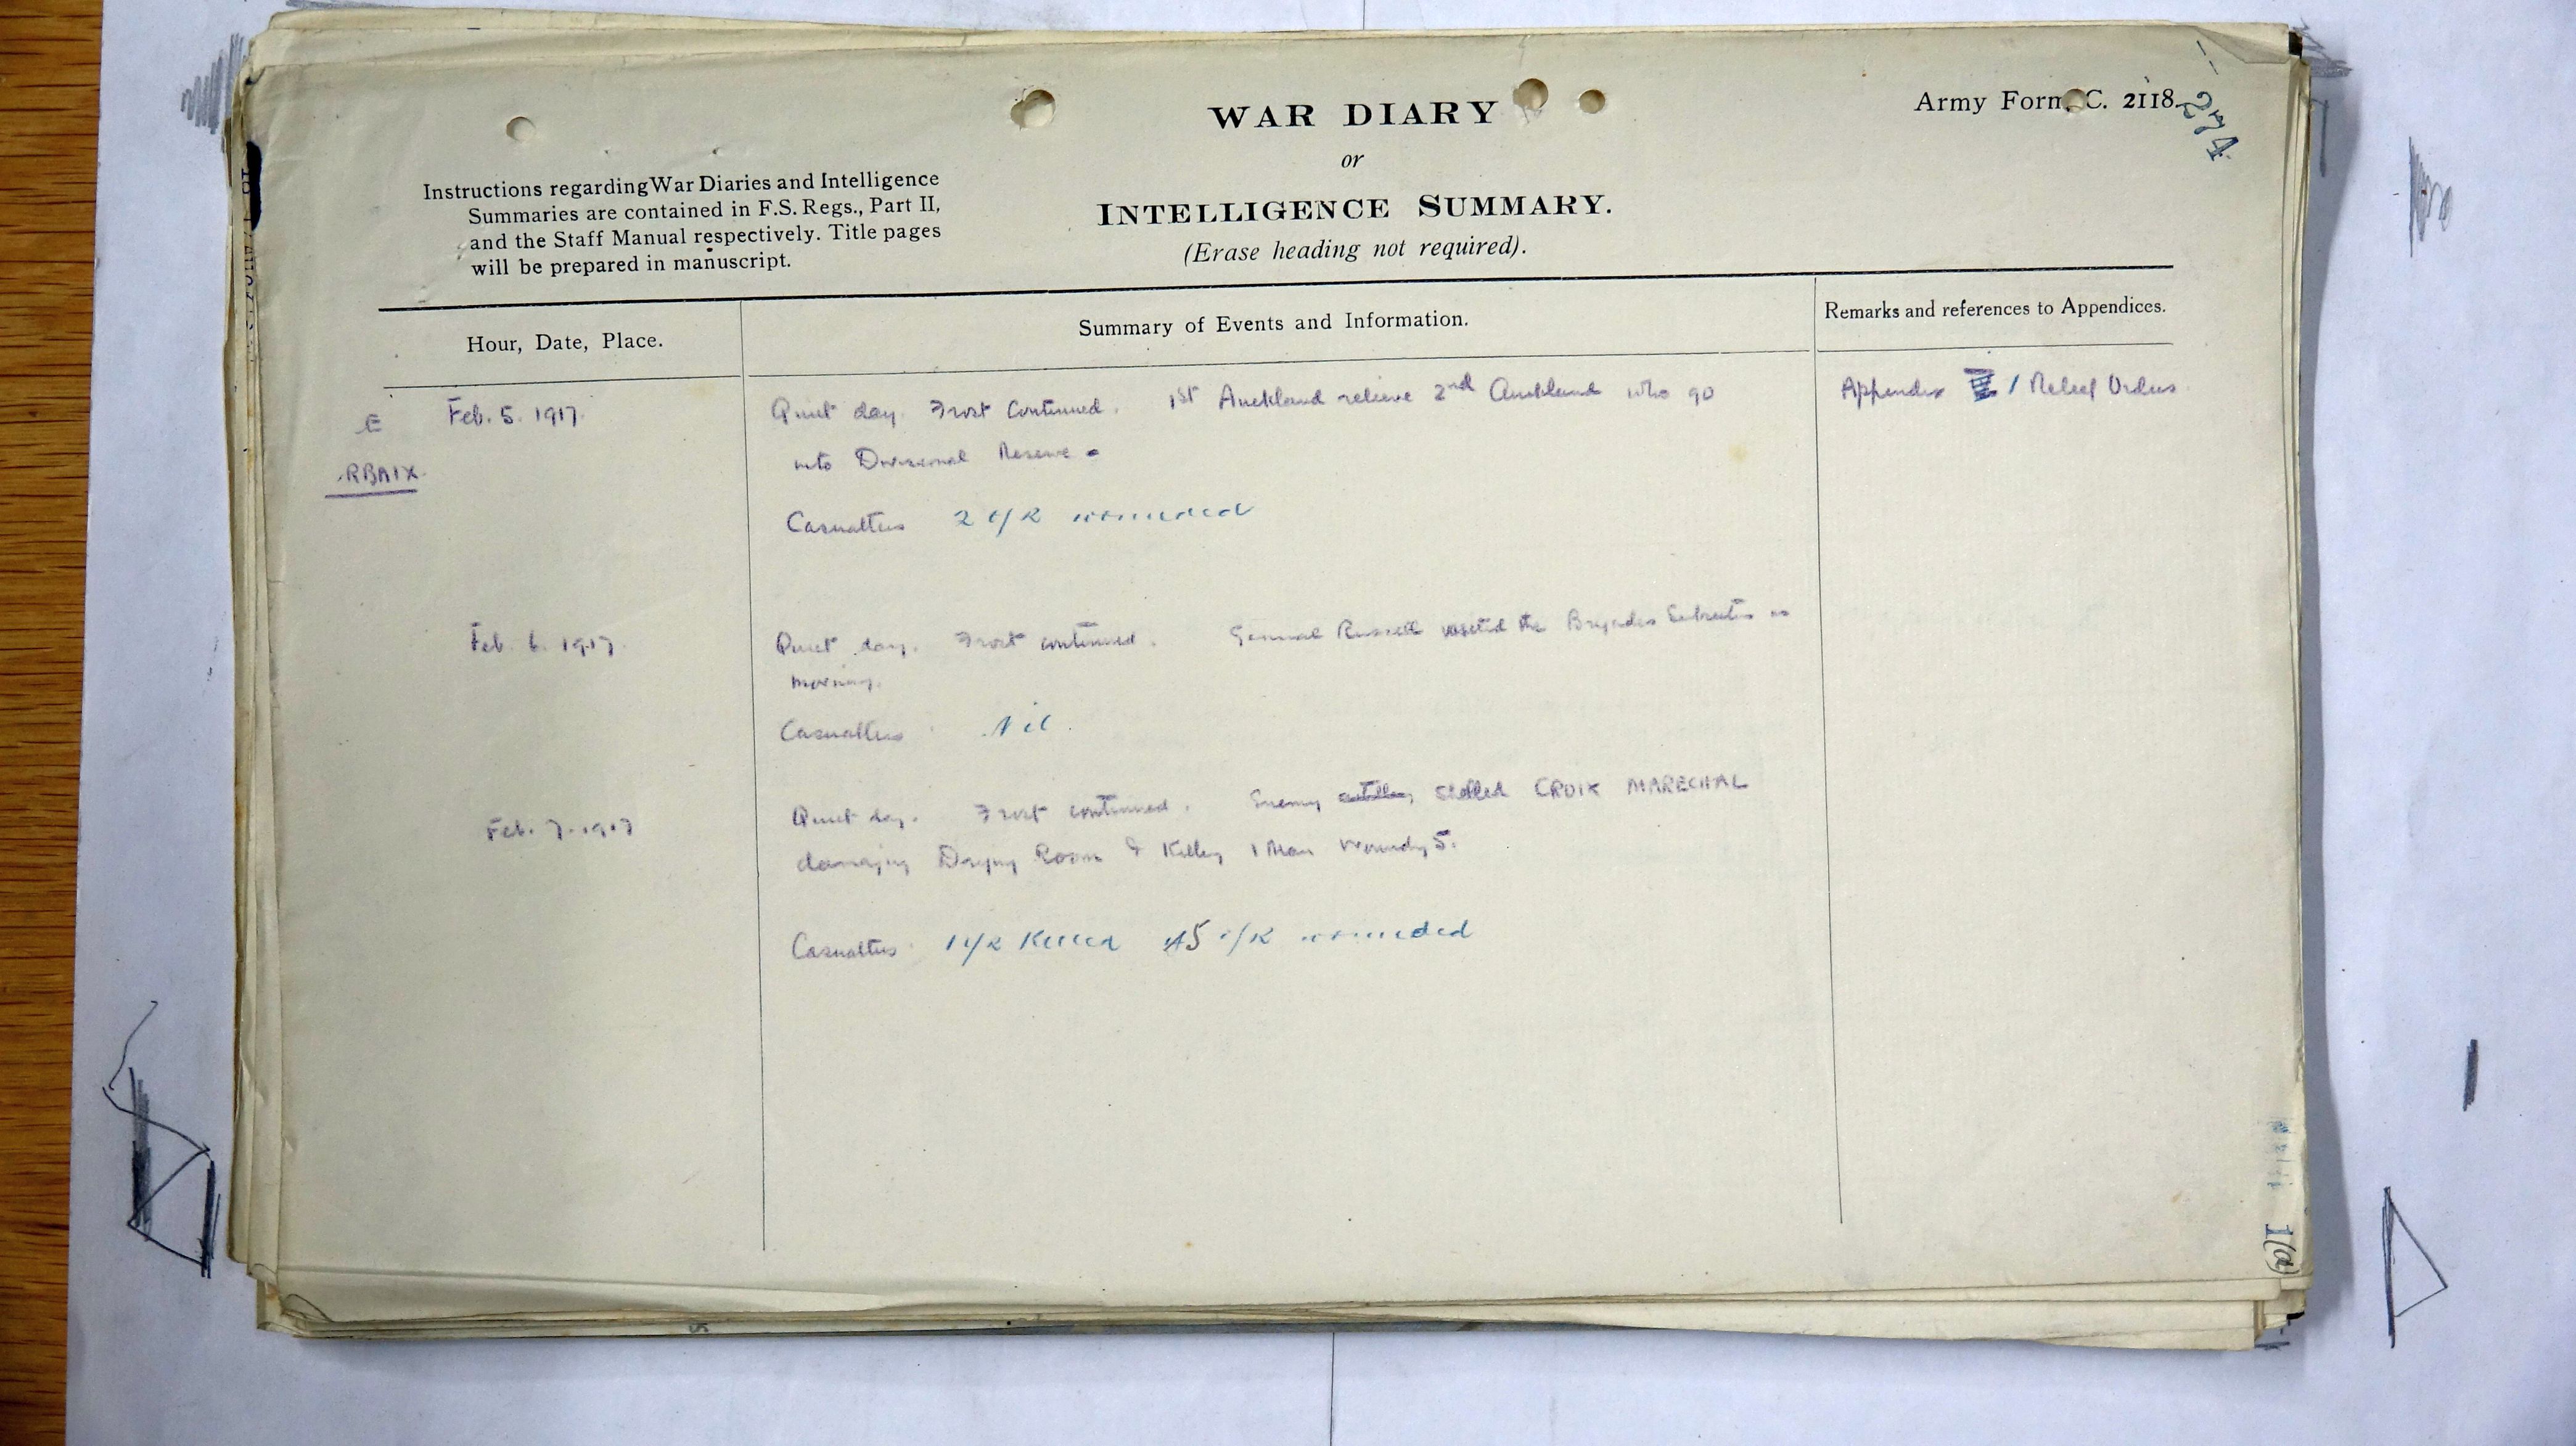 WAR DIARY
or
INTELLIGENCE SUMMARY.
(Erase heading not required).
Army Form C. 2118.
274
Instructions regarding War Diaries and Intelligence
Summaries are contained in F.S. Regs., Part II,
and the Staff Manual respectively. Title pages
will be prepared in manuscript.
Hour, Date, Place.
Summary of Events and Information.
Remarks and references to Appendices.
E Feb. 5. 1917.
RBAIX.
Quiet day. Frost Continued. 1st Auckland relieve 2nd Auckland who go
into Divisional Reserve.
Casualties 2 O/R wounded
Appendix 1 Relief Orders.
Feb. 6. 1917.
Quiet day. Frost continued. General Russell visited the Brigades in
morning.
Casualties Nil.
Feb. 7. 1917
Quiet day. Frost continued. Enemy artillery shelled CROIX MARECHAL
damaging Drying Room & Killing 1 Man Wounding 5.
Casualties 1 O/R Killed 5 O/R wounded
1(a)